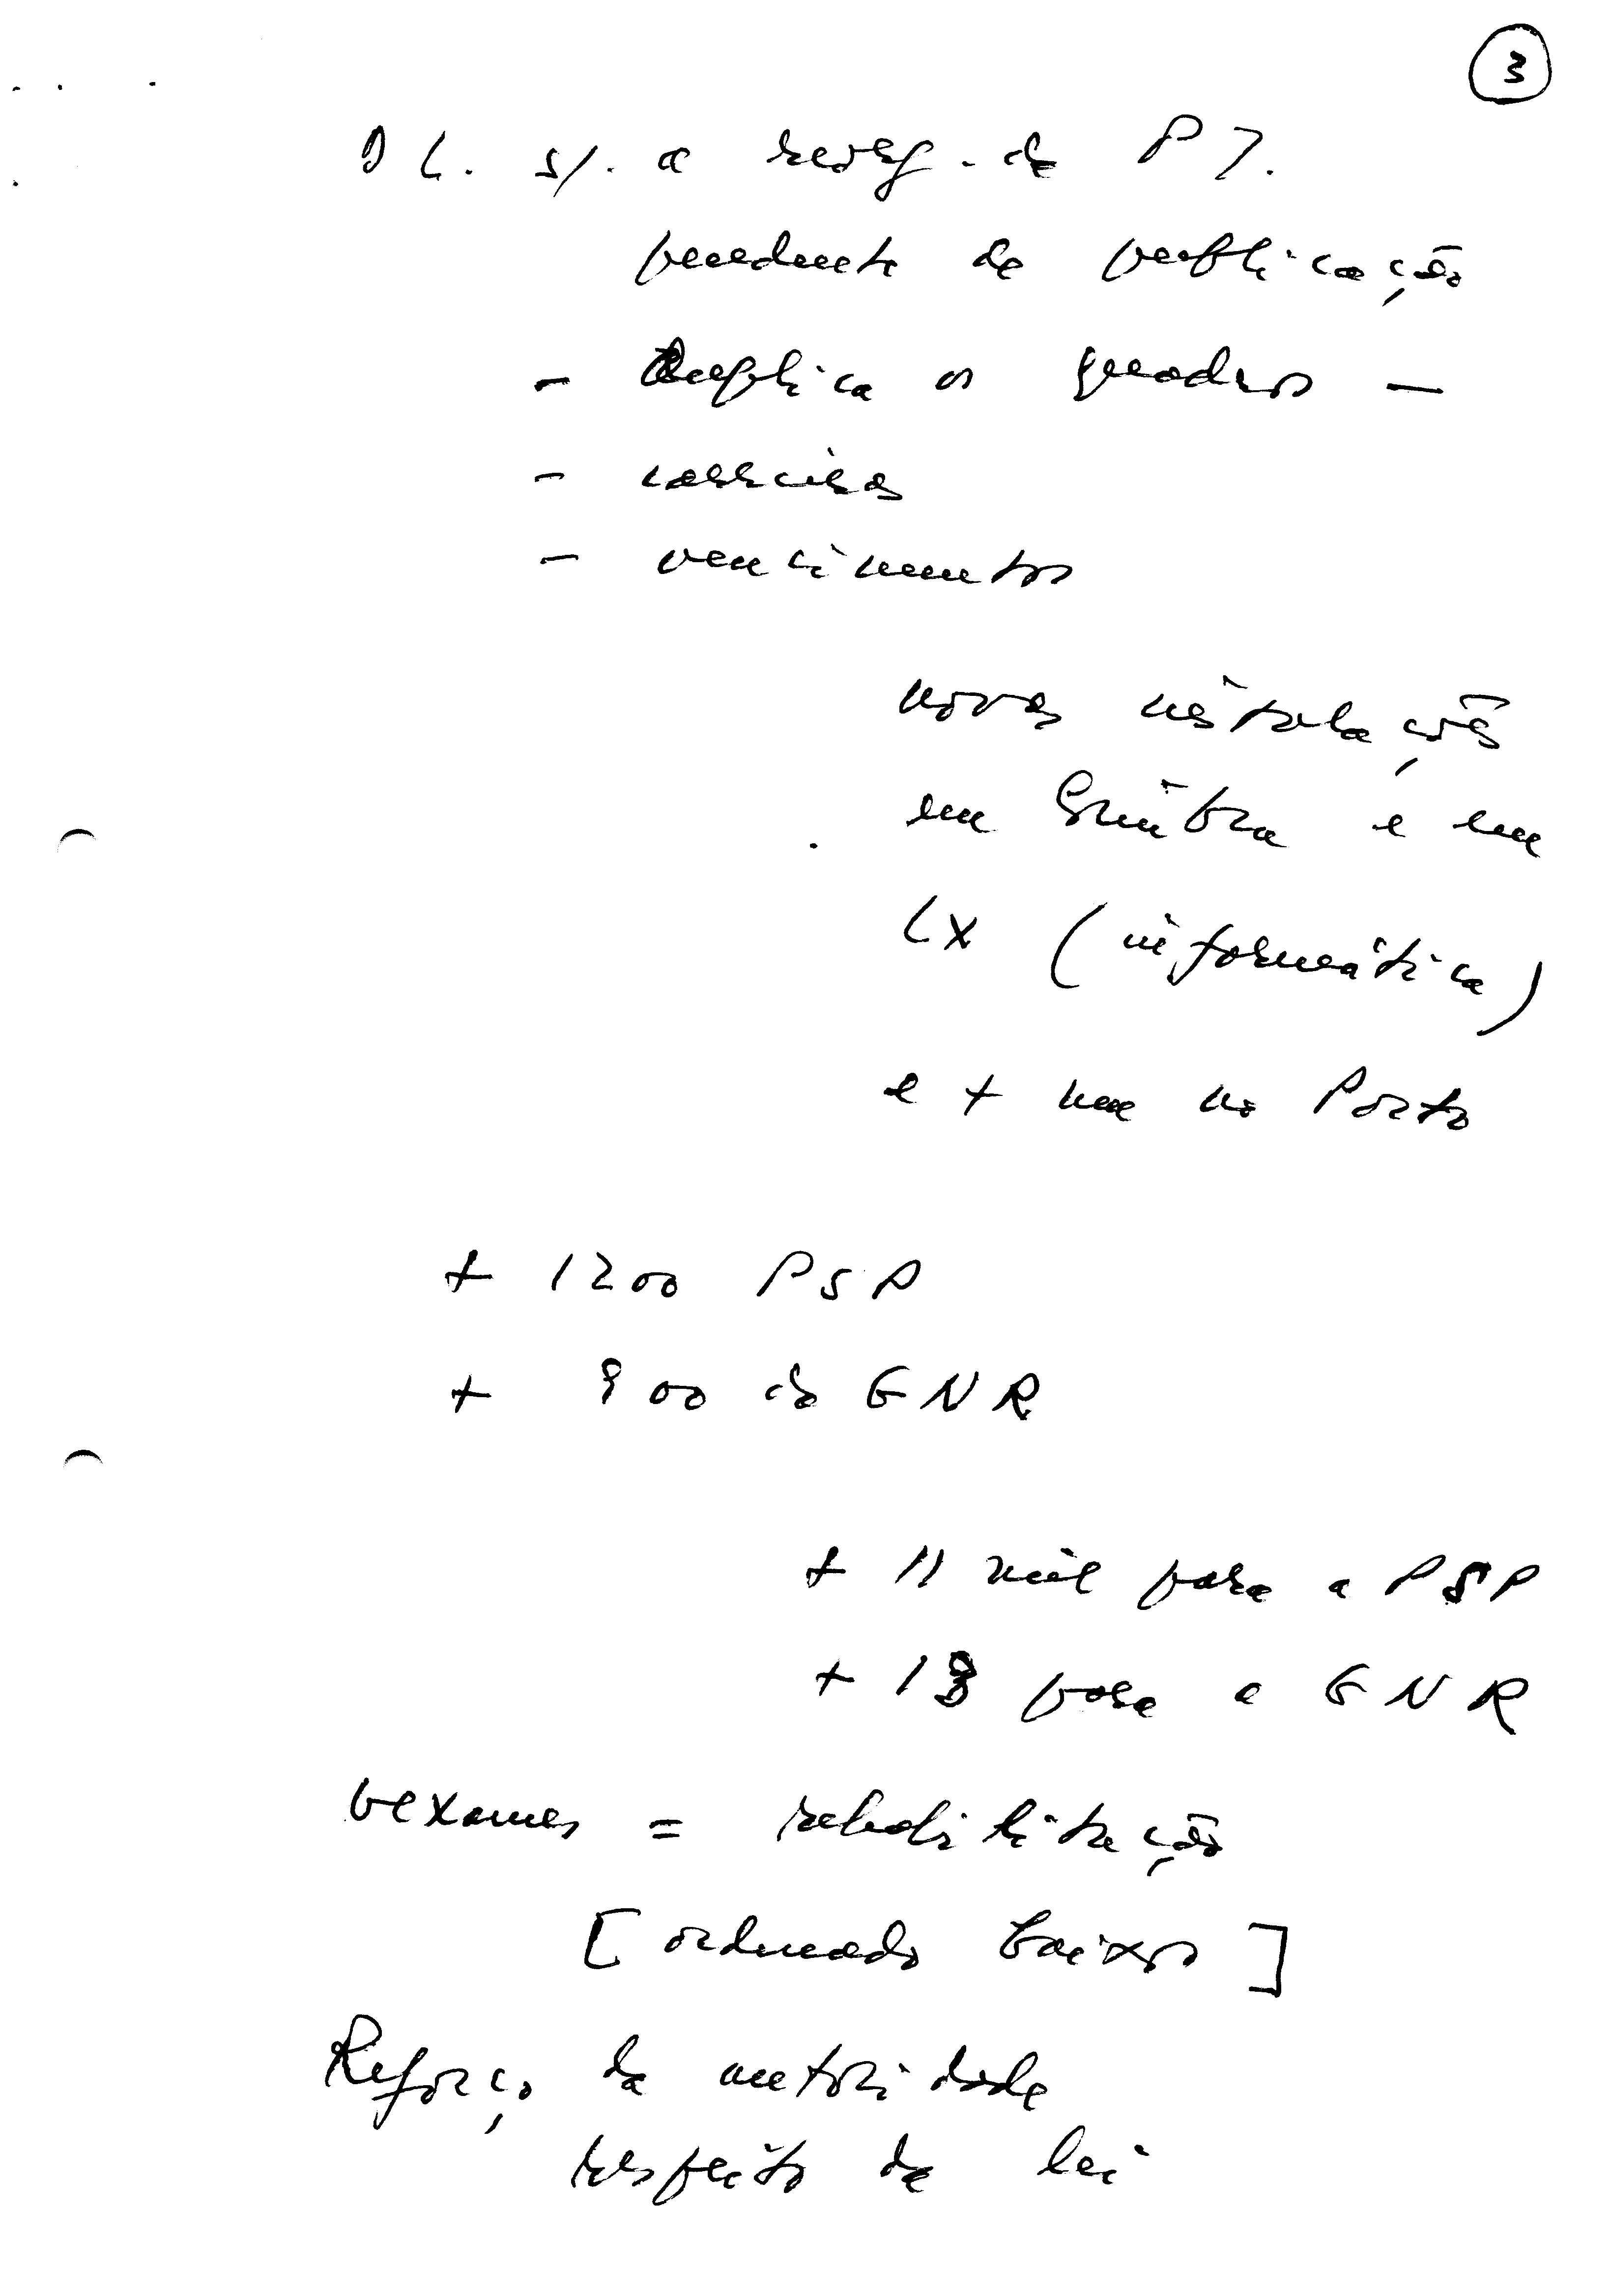 3
DL. s/. a reorg. da PJ.
pendente de publicação
- Duplica os quadros -
- carreiras
- vencimentos
novas instalações
em Coimbra e em
LX (informática)
e + um no Porto
+ 1200 PSP
+ 900 da GNR
+ 11 mil para a PSP
+ 18 para a GNR
vexames = rehabilitação
[ordenado baixo]
Reforço da autoridade
respeito da lei